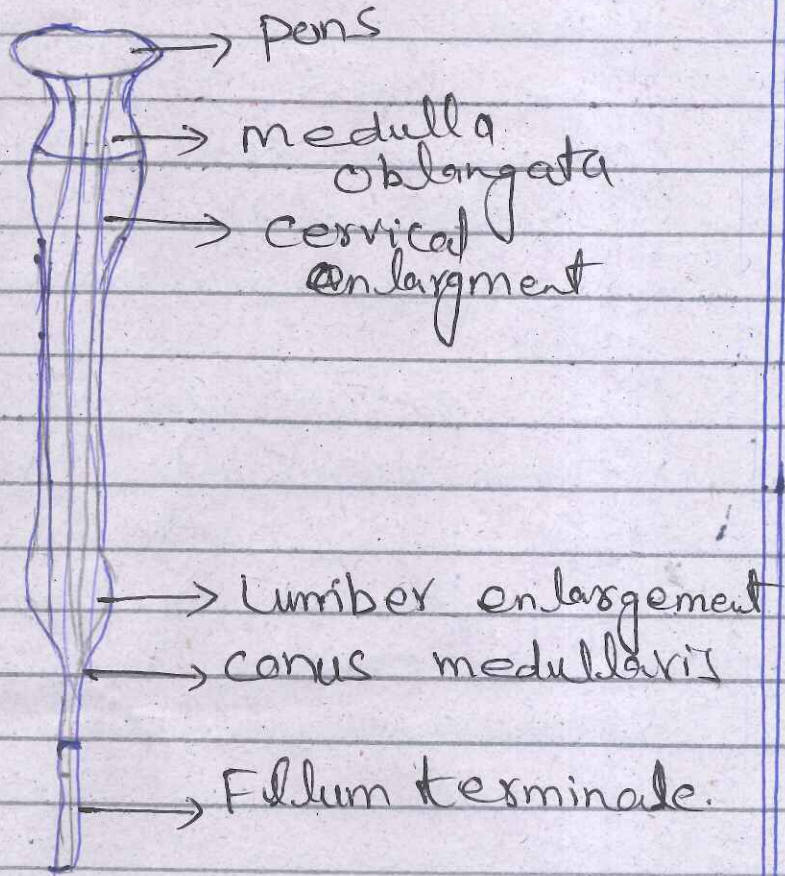 Pons
medulla
oblangata
cervical
enlargment
Lumber enlargement
conus medullaris
Filum terminale.